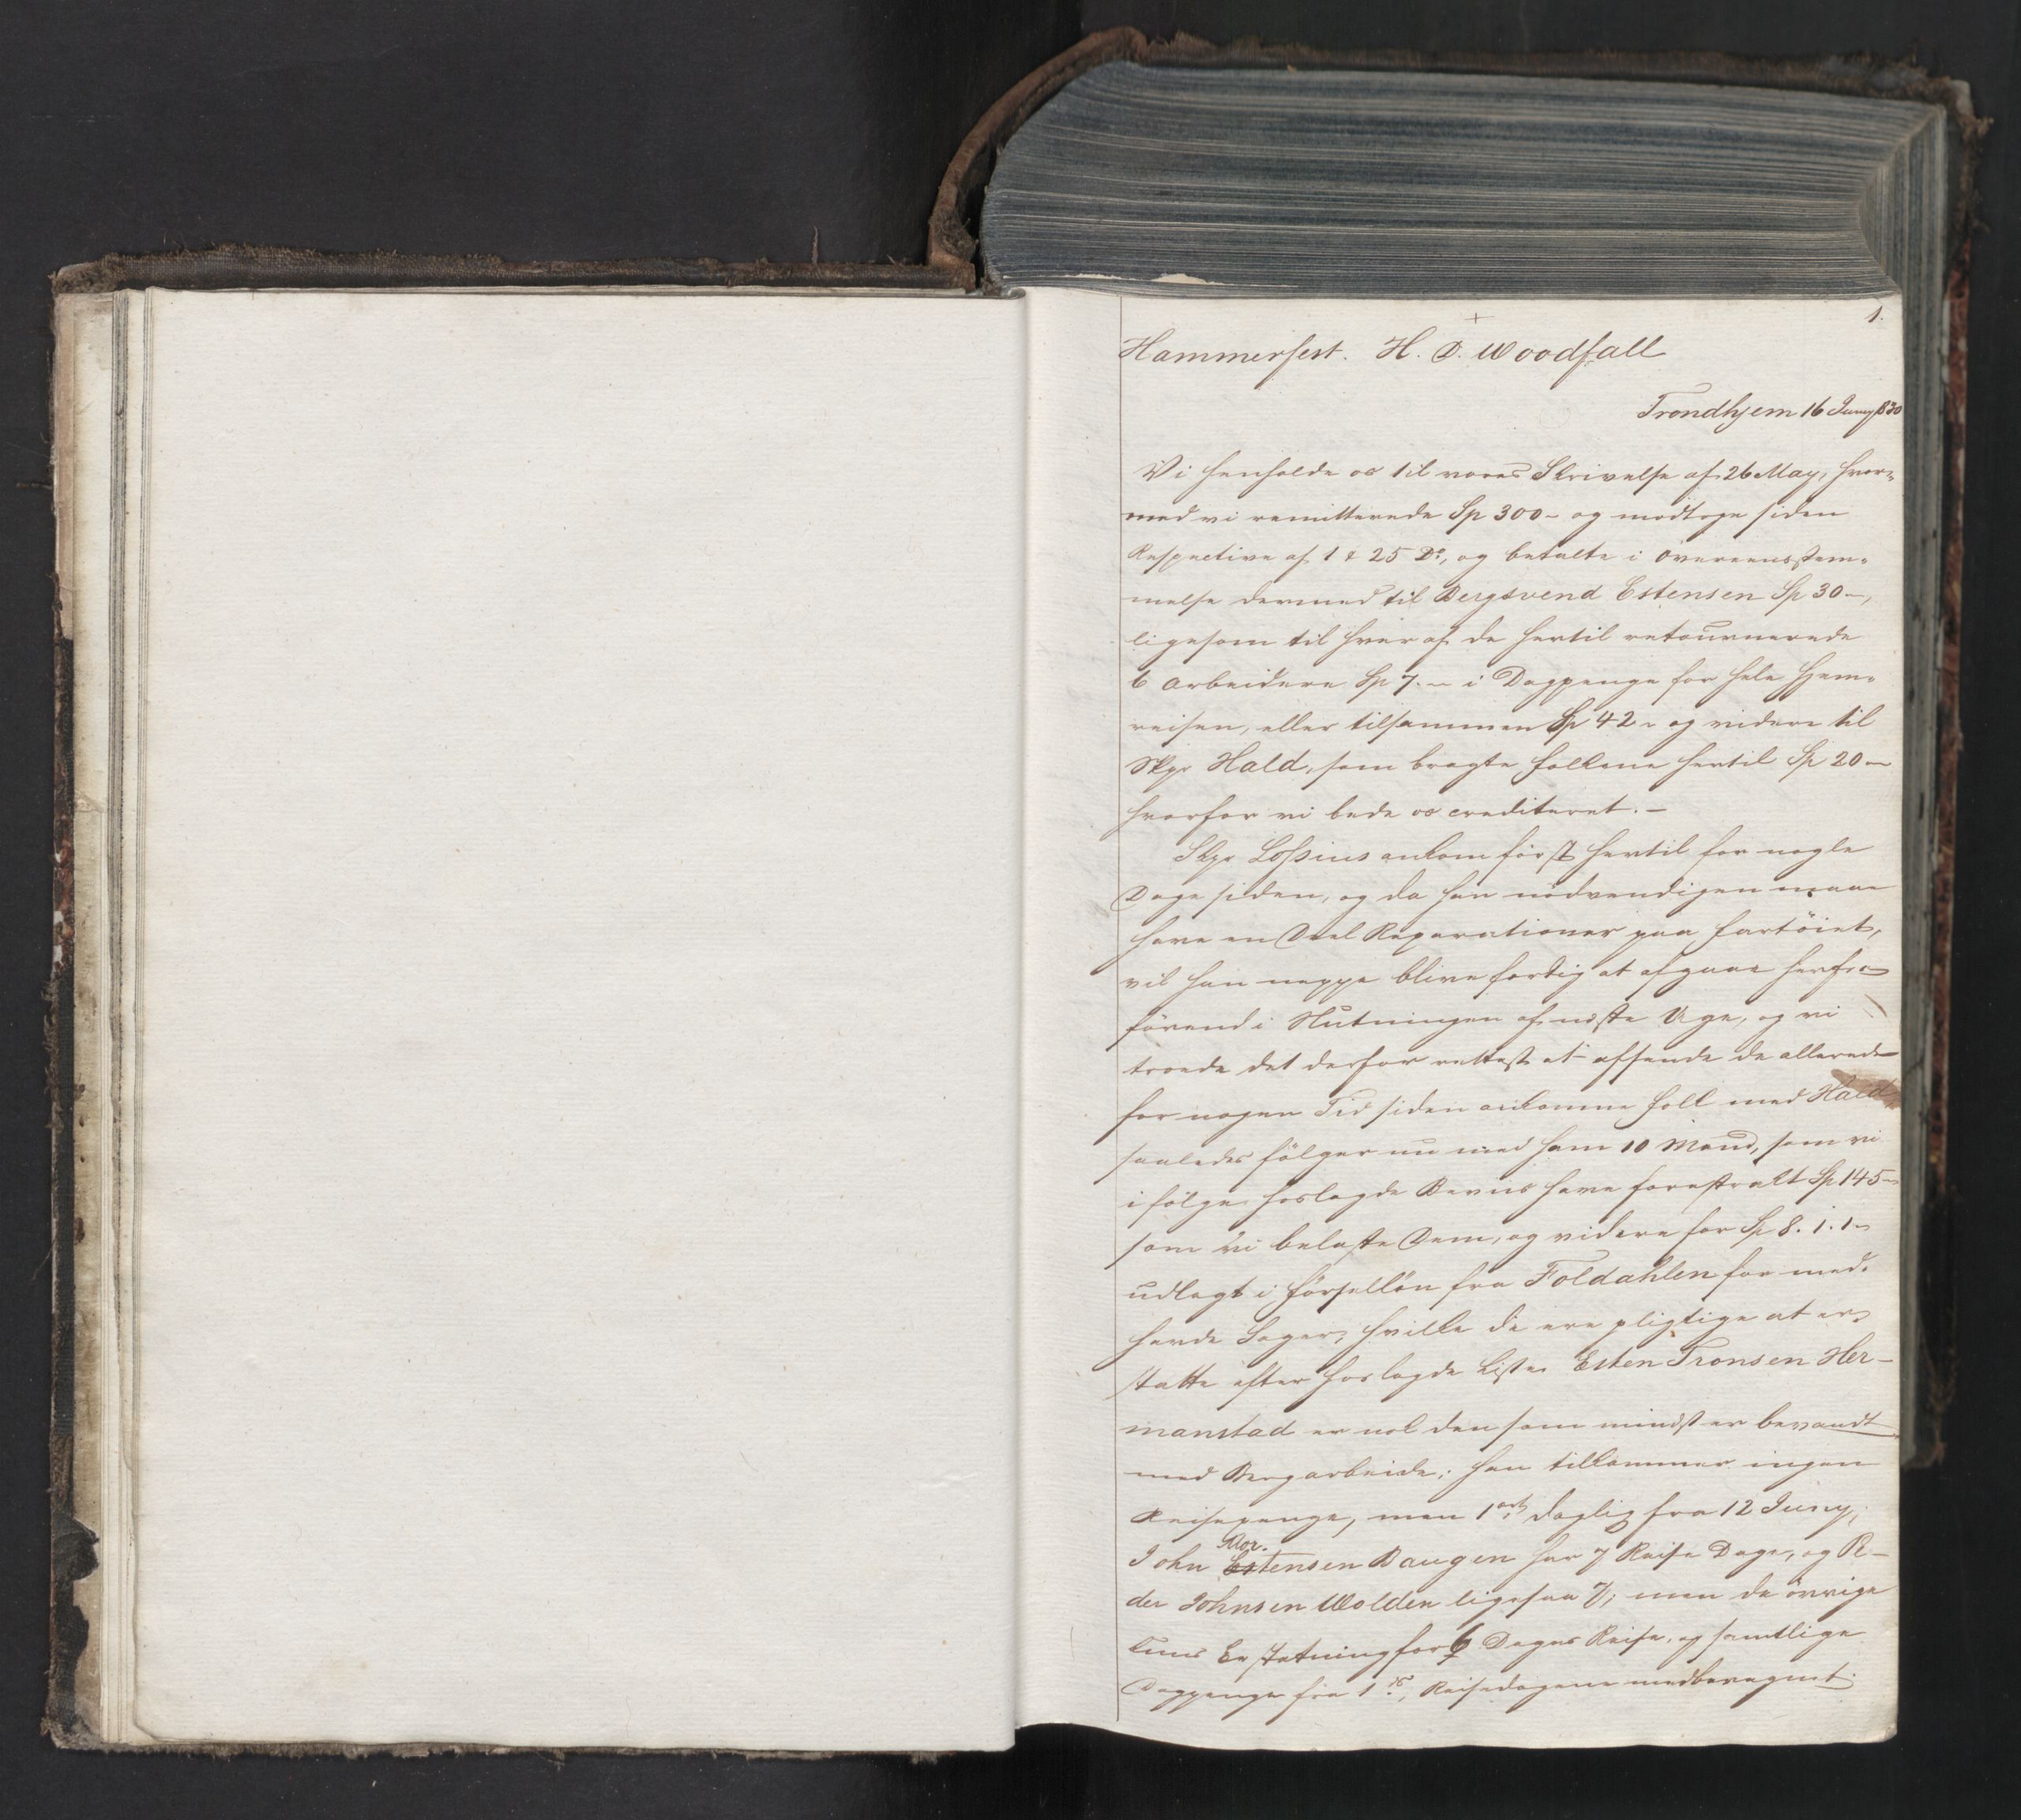 1.
Hammerfest. H. D. Woodfall
Trondhjem 16 Juny 830
Vi henholde os til vores Skrivelse af 26 May, hvor-
med vi remitterede Sp 300 - og modtoge siden
Respective af 1 & 25 Do, og betalte i Overeensstem-
melse dermed til Bergsvend Estensen Sp 30 -,
ligesom til hver af de hertil retournerede
6 Arbeidere Sp 7. - i Dagpenge for hele Hjem-
reisen, eller tilsammen Sp 42 - og videre til
Skpr Hald, som bragte Folkene hertil Sp 20 -
hvorfor vi bede os crediteret. -
Skpr Lossius ankom først hertil for nogle
Dage siden, og da han nödvendigen maae
have en Deel Reparationer paa Fartöiet,
vil han neppe blive færdig at afgaae herfra
förend i Slutningen af næste Uge, og vi
troede det derfor rettest at afsende de allerede
for nogen Tid siden ankomne Folk med Hald,
saaledes fölger nu med ham 10 Mand, som vi
ifölge hoslagde Beviis have forestrakt Sp 145 -
som vi belaste Dem, og videre for Sp 8. 1. 1 -
udlagt i Förselslön fra Foldahlen for med-
havde Sager, hvilke de ere pligtige at er-
statte efter hoslagde Liste. Esten Tronsen Her-
manstad er nok den som mindst er bevandt
med Bergarbeide; han tilkommer ingen
Reisepenge, men 1 ort daglig fra 12 Juny;
John Mor. Estensen Baugen har 7 Reise Dage, og Pe-
der Johnsen Wolden ligesaa 7; men de övrige
kuns Erstatning for 6 Dages Reise, og samtlige
Dagpenge fra 1 ds, Reisedagene medberegnet.